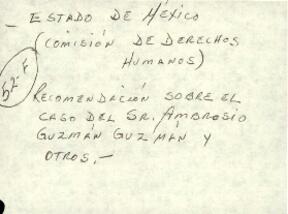 - ESTADO DE MÉXICO
(COMISIÓN DE DERECHOS
HUMANOS)
52-F
RECOMENDACIÓN SOBRE EL
CASO DEL SR. AMBROSIO
GUZMÁN GUZMÁN Y
OTROS.-